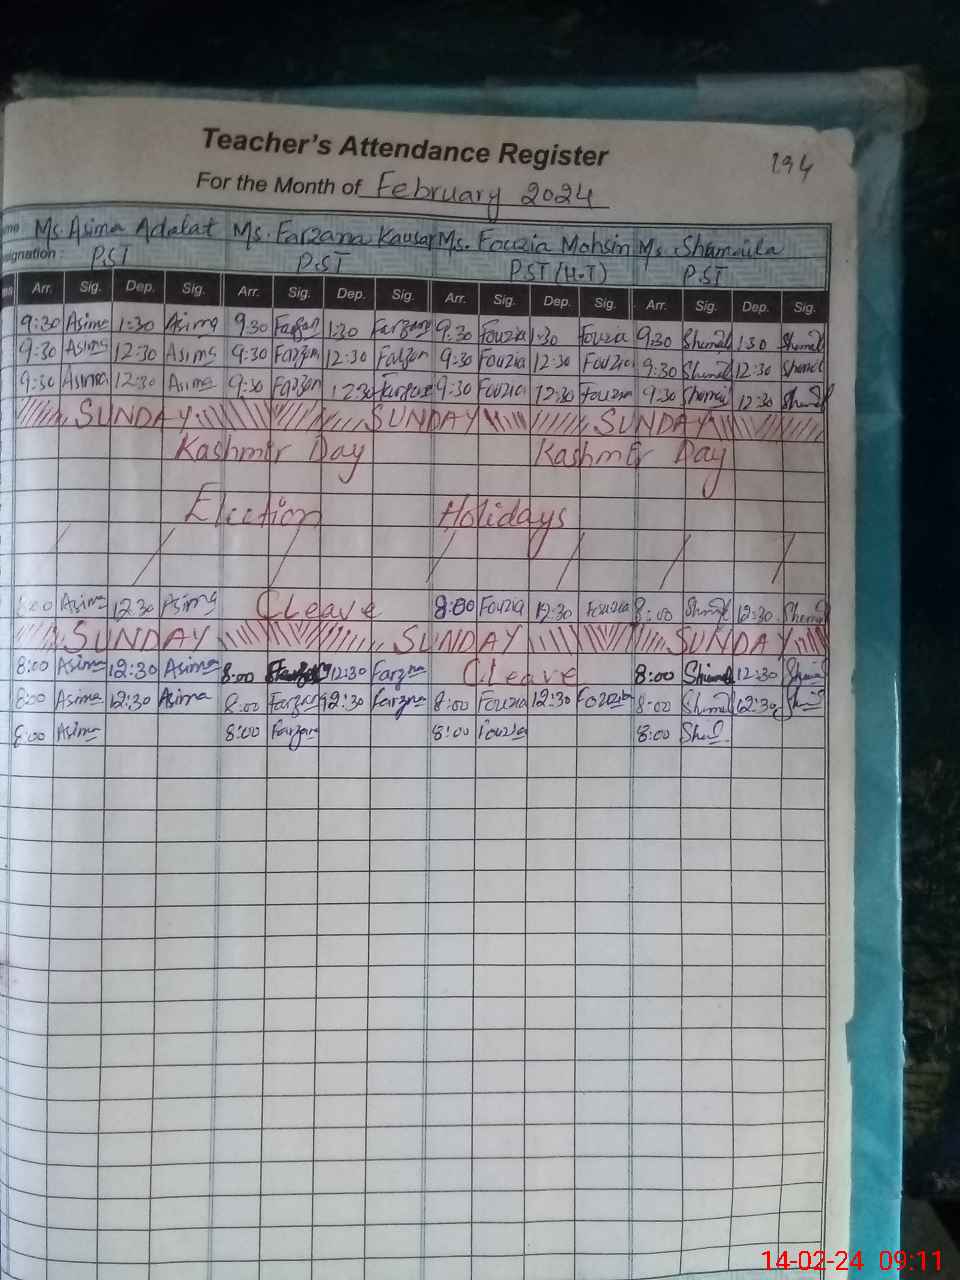 Teacher's Attendance Register
194
For the Month of February 2024
Ms. Asima Adalat Ms. Farzana Kausar Ms. Fouzia Mohsin Ms. Shamaila
signation : P.ST P.ST P.ST (H.T) P.ST
Arr. Sig. Dep. Sig. Arr. Sig. Dep. Sig. Arr. Sig. Dep. Sig. Arr. Sig. Dep. Sig.
9:30 Asima 1:30 Asima 9:30 Farzan 1:30 Farzana 9:30 Fouzia 1:30 Fouzia 9:30 1:30
9:30 Asima 12:30 Asima 9:30 Farzan 12:30 Farzan 9:30 Fouzia 12:30 Fouzia 9:30 12:30
9:30 Asima 12:30 Asima 9:30 Farzan 12:30 Farzana 9:30 Fouzia 12:30 Fouzia 9:30 12:30
SUNDAY SUNDAY SUNDAY
Kashmir Day Kashmir Day
Election Holidays
8:00 Asima 12:30 Asima C Leave 8:00 Fouzia 12:30 Fouzia 8:00 12:30
SUNDAY SUNDAY SUNDAY
8:00 Asima 12:30 Asima 8:00 12:30 Farzna C Leave 8:00 12:30
8:00 Asima 12:30 Asima 8:00 Farzan 12:30 Farzna 8:00 Fouzia 12:30 Fouzia 8:00 12:30
8:00 Asima 8:00 Farzan 8:00 Fouzia 8:00
14-02-24 09:11